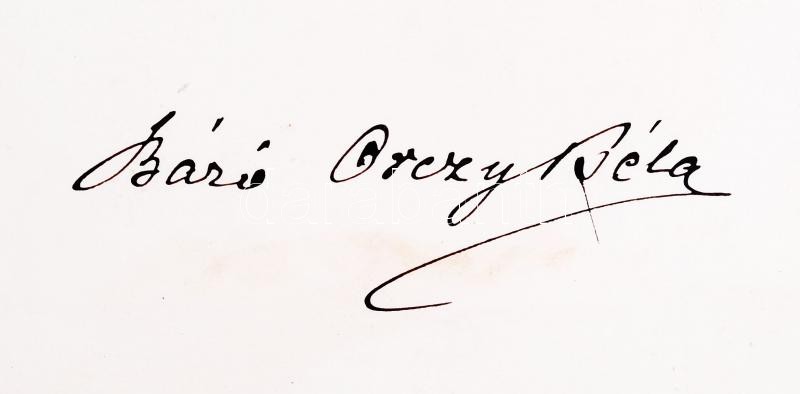 Báró Orczy Béla